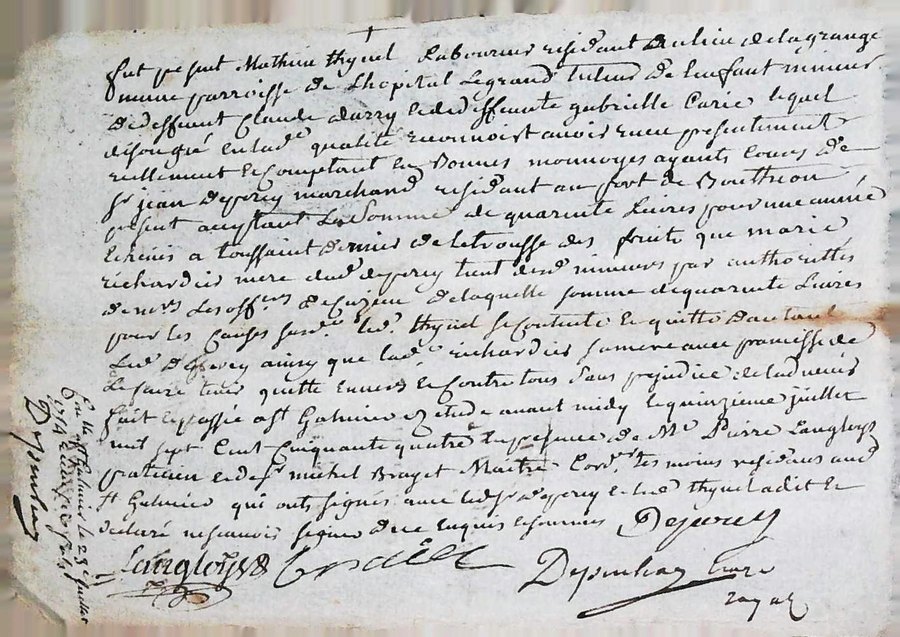 fut present Mathieu thynel Laboureur residant au lieu de lagrange
parroisse de Lhopital Legrand tuteur de lenfant mineur
de deffunt Claude et de deffunte gabrielle Carie lequel
de son gré en lad.e qualité reconnoist avoir receu presentement
reellement et comptant en bonnes monnoyes ayants cours de
Sr jean Deperey marchand residant au port de Bouthéon
present acceptant La Somme de quarante Livres pour une année
Echeüe a toussaint dernier de la trousse des fruits que marie
richardier mere dud. deperey tient desd. mineurs par authorittés
de nrs Les offers de Cuzieu de laquelle somme de quarante Livres
pour les Causes susd. led. thynel se Contente et quitte d'autant
Led. Deperey ainsy que lad.e richardier sa mere avec promesse de
Le faire tenir quitte Envers et Contre tous sans prejudice de
fait et passé a St Galmier etude avant midy le quinzieme juillet
mil sept Cent Cinquante quatre En presence de Me Pierre Langloys
praticien et de Sr michel Maitre Cord.r tesmoins residans aud.
St Galmier qui ont signés avec led. Sr deperey et led. thynel a dit et
declaré ne sçavoir signer de ce Enquis et sommés Deperey
Langloys
Depinhac
Enlle a St Galmier le 23e juillet
1754